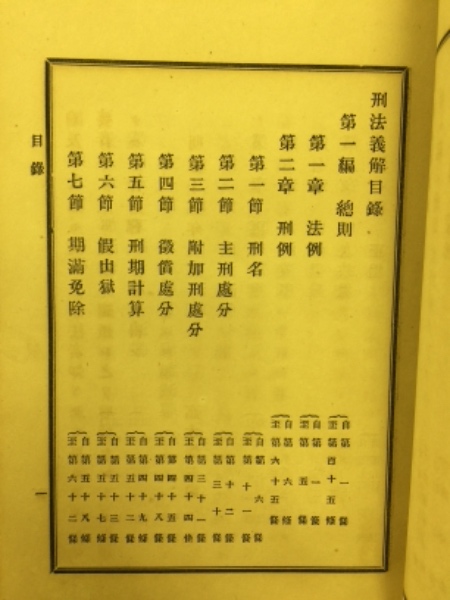 刑法義解目錄
第一編 總則 自第一條 至第百十五條
第一章 法例 自第一條 至第五條
第二章 刑例 自第六條 至第六十五條
第一節 刑名 自第六條 至第十一條
第二節 主刑處分 自第十二條 至第三十條
第三節 附加刑處分 自第三十一條 至第四十四條
第四節 徵償處分 自第四十五條 至第四十八條
第五節 刑期計算 自第四十九條 至第五十二條
第六節 假出獄 自第五十三條 至第五十七條
第七節 期滿免除 自第五十八條 至第六十二條
目錄
一